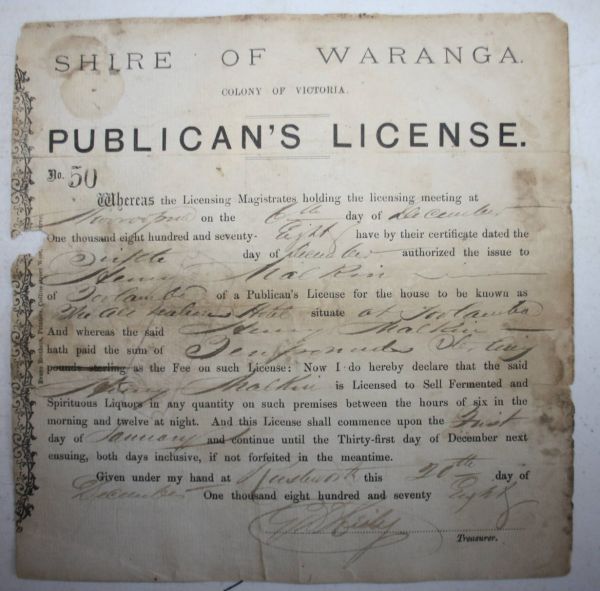 SHIRE OF WARANGA.
COLONY OF VICTORIA.
PUBLICAN'S LICENSE.
No. 50
Whereas the Licensing Magistrates holding the licensing meeting at
on the day of December
One thousand eight hundred and seventy- Eight have by their certificate dated the
day of December authorized the issue to
Henry Malkin
of Toolamba of a Publican's License for the house to be known as
Hotel situate at Toolamba
And whereas the said Henry Malkin
hath paid the sum of Ten pounds
pounds sterling as the Fee on such License: Now I do hereby declare that the said
Henry Malkin is Licensed to Sell Fermented and
Spirituous Liquors in any quantity on such premises between the hours of six in the
morning and twelve at night. And this License shall commence upon the First
day of January and continue until the Thirty-first day of December next
ensuing, both days inclusive, if not forfeited in the meantime.
Given under my hand at Rushworth this 20th day of
December One thousand eight hundred and seventy Eight
Treasurer.